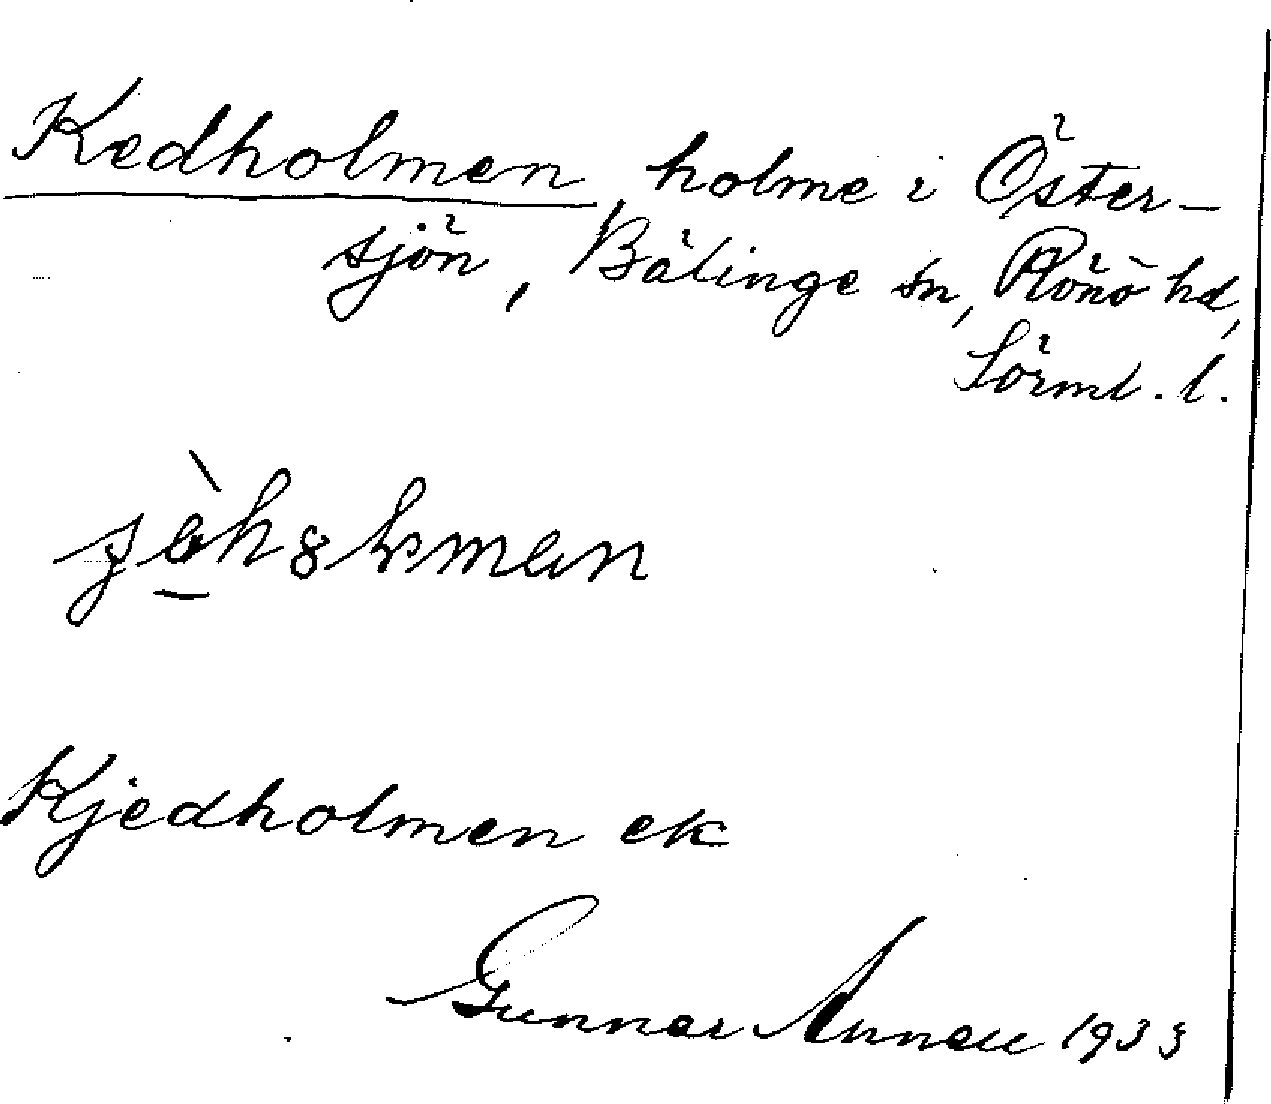 Kedholmen, holme i Öster-
sjön, Bälinge sn, Rönö hd,
Sörml. l.
Kjedholmen ek
Gunnar 1933